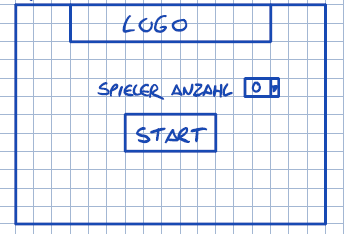 LOGO
SPIELER ANZAHL 0
START